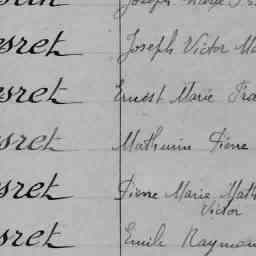 Joseph Marie
sret Joseph Victor Ma
sret Ernest Marie Fra
sret Mathurin Pierre
sret Pierre Marie Math
Victor
sret Emile Raymon